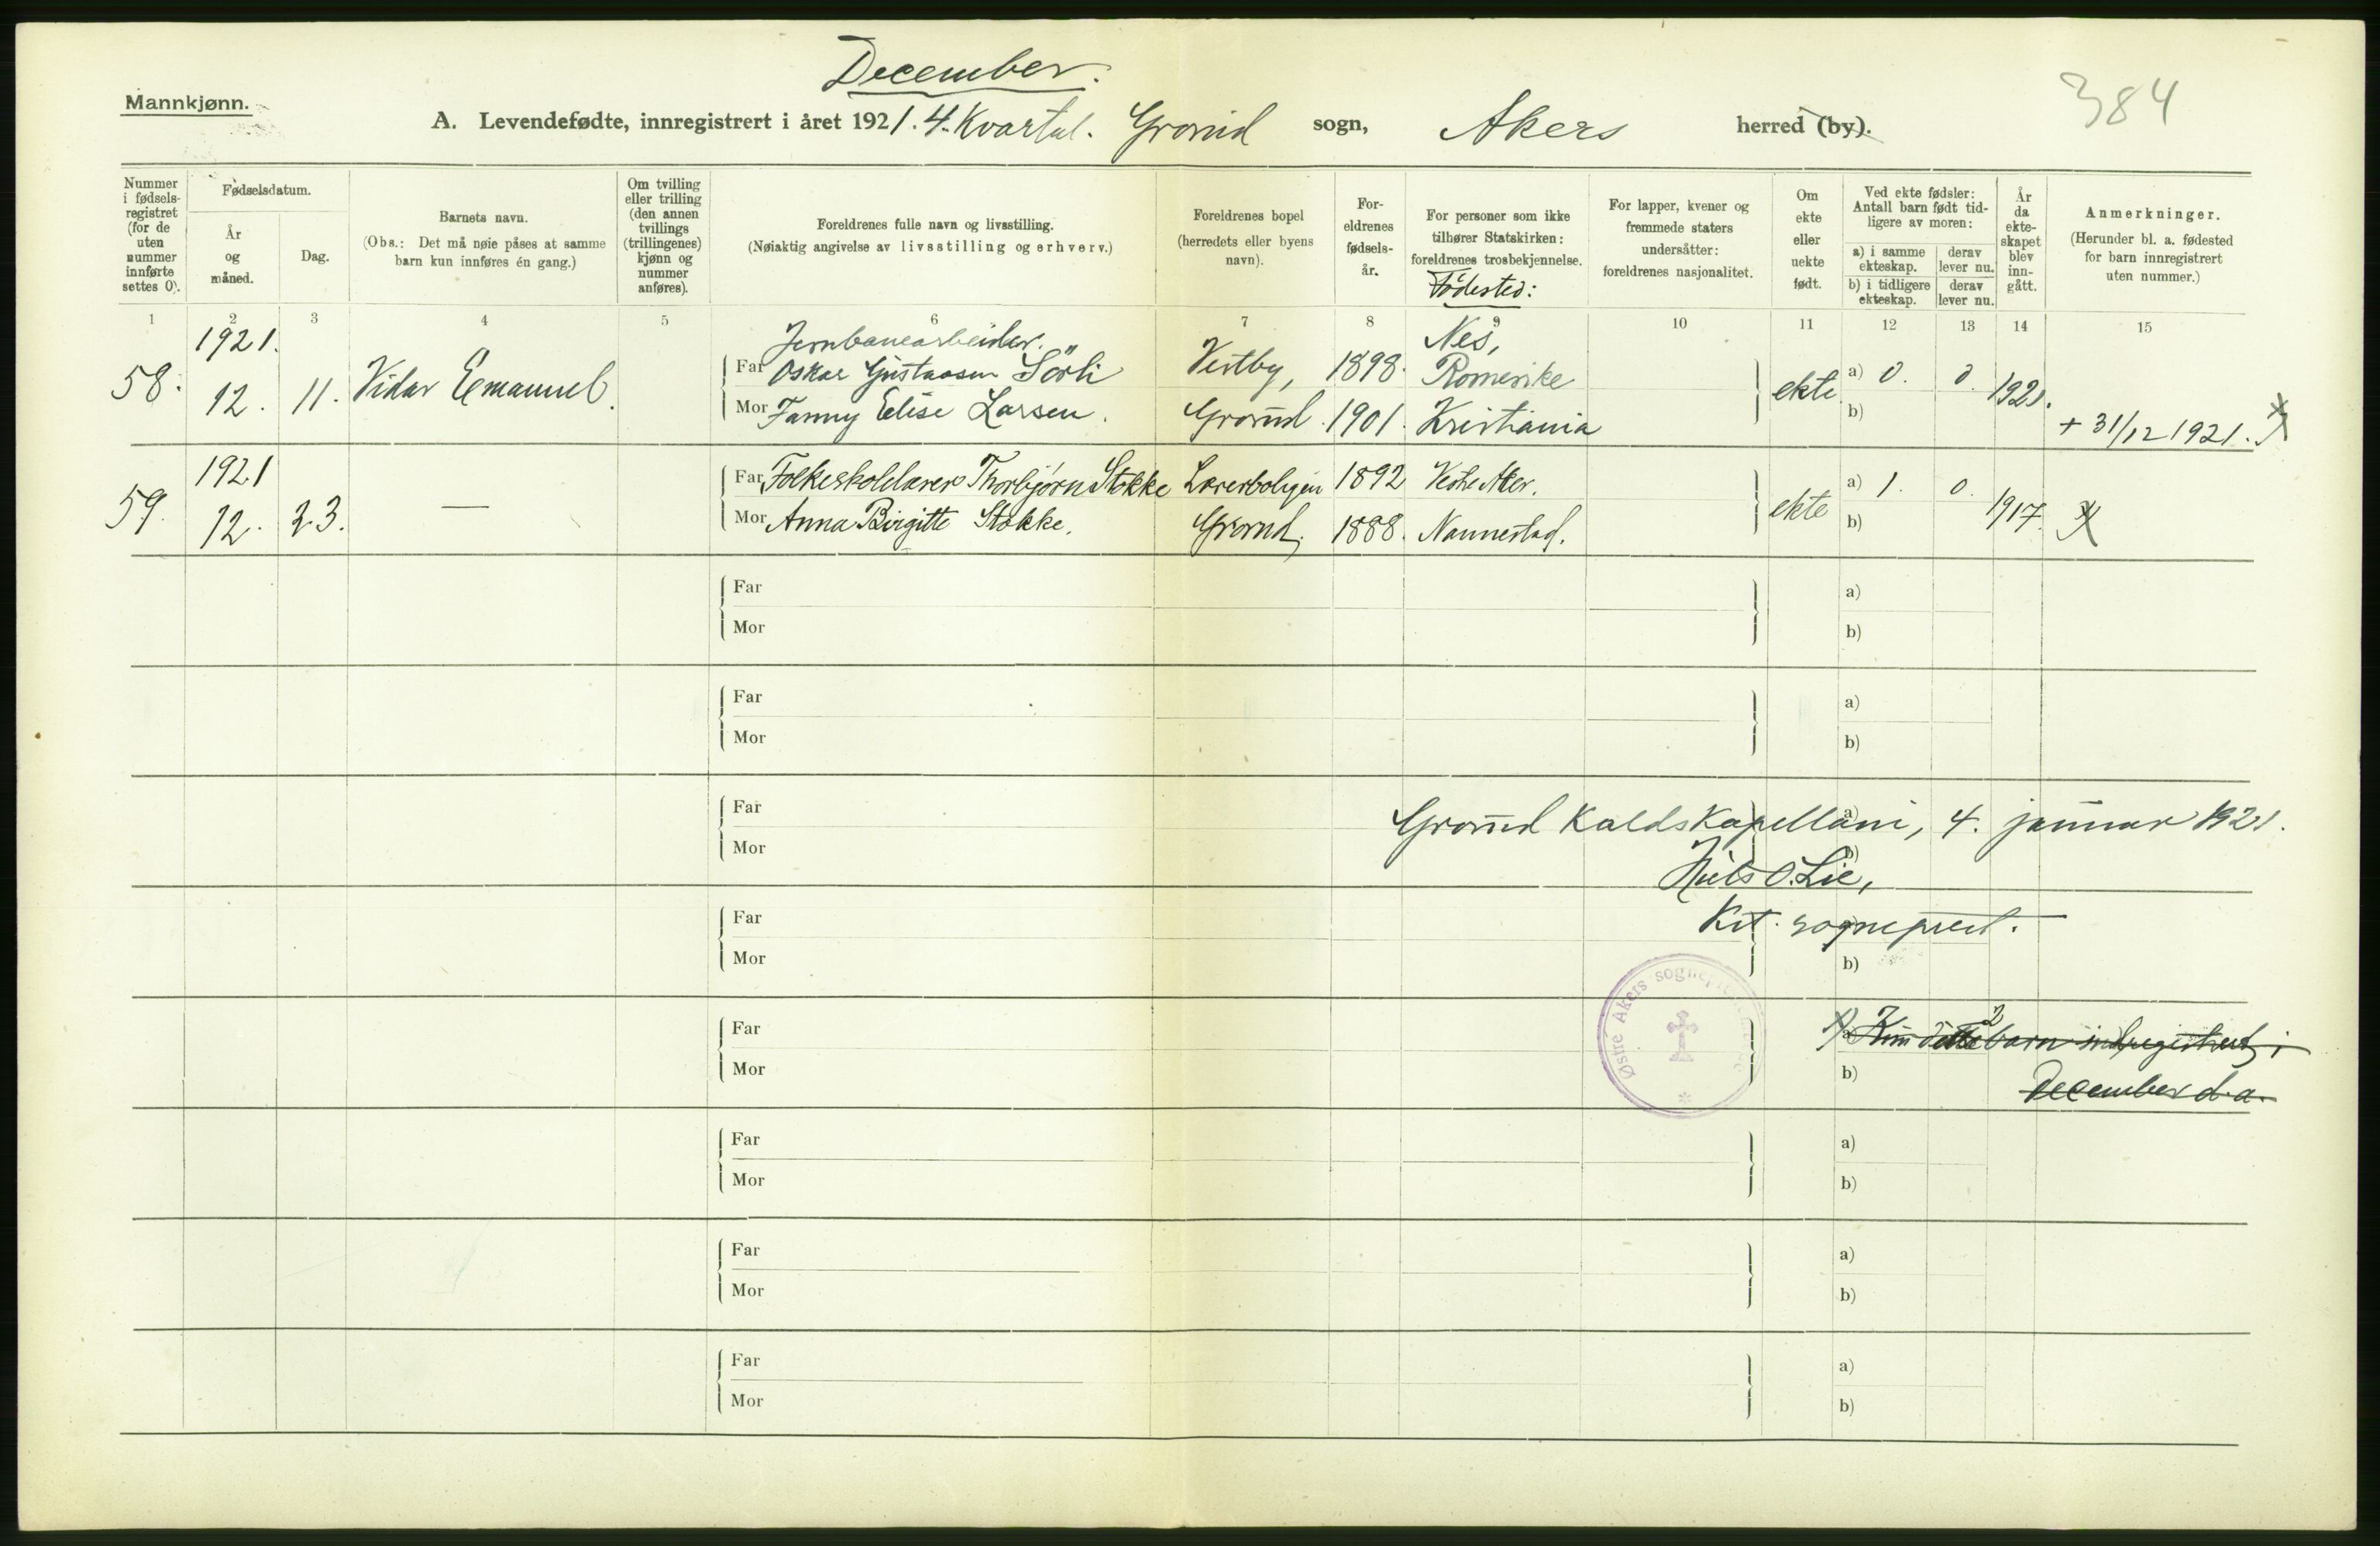 December.
Mannkjønn.
A. Levendefødte, innregistrert i året 1921. 4. Kvartal. Grorud sogn, Akers herred (by).
384
Nummer i fødsels-registret (for de uten nummer innførte settes 0).
Fødselsdatum.
År og måned.
Dag.
Barnets navn.
(Obs.: Det må nøie påses at samme barn kun innføres én gang.)
Om tvilling eller trilling (den annen tvillings (trillingenes) kjønn og nummer anføres).
Foreldrenes fulle navn og livsstilling.
(Nøiaktig angivelse av livsstilling og erhverv.)
Foreldrenes bopel (herredets eller byens navn).
For-eldrenes fødsels-år.
For personer som ikke tilhører Statskirken: foreldrenes trosbekjennelse.
Födested:
For lapper, kvener og fremmede staters undersåtter: foreldrenes nasjonalitet.
Om ekte eller uekte født.
Ved ekte fødsler: Antall barn født tid-ligere av moren:
a) i samme ekteskap.
derav lever nu.
b) i tidligere ekteskap.
derav lever nu.
År da ekte-skapet blev inn-gått.
Anmerkninger.
(Herunder bl. a. fødested for barn innregistrert uten nummer.)
1 2 3 4 5 6 7 8 9 10 11 12 13 14 15
58. 1921. 12. 11. Vidar Emanuel.
Jernbanearbeider.
Far Oskar Gustavsen Sörli Vestby, 1898. Nes, Romerike
Mor Fanny Elise Larsen. Grorud. 1901. Kristiania
ekte a) 0. 0. 1921.
b)
+ 31/12 1921.
59. 1921 12. 23. —
Far Folkeskolelærer Thorbjørn Stokke Lærerboligen 1892 Vestre Aker.
Mor Anna Birgitte Stokke. Grorud. 1888. Nannestad.
ekte a) 1. 0. 1917.
b)
Far a)
Mor b)
Far a)
Mor b)
Far a)
Mor b)
Grorud Kaldskapellani, 4. januar 1921.
Niels O. Lie,
Kst. sogneprest.
Far
Mor b)
Østre Akers
Far
Mor b)
x) Kun dette 2 barn indregistrert i
December d.a.
Far a)
Mor b)
Far a)
Mor b)
Far a)
Mor b)